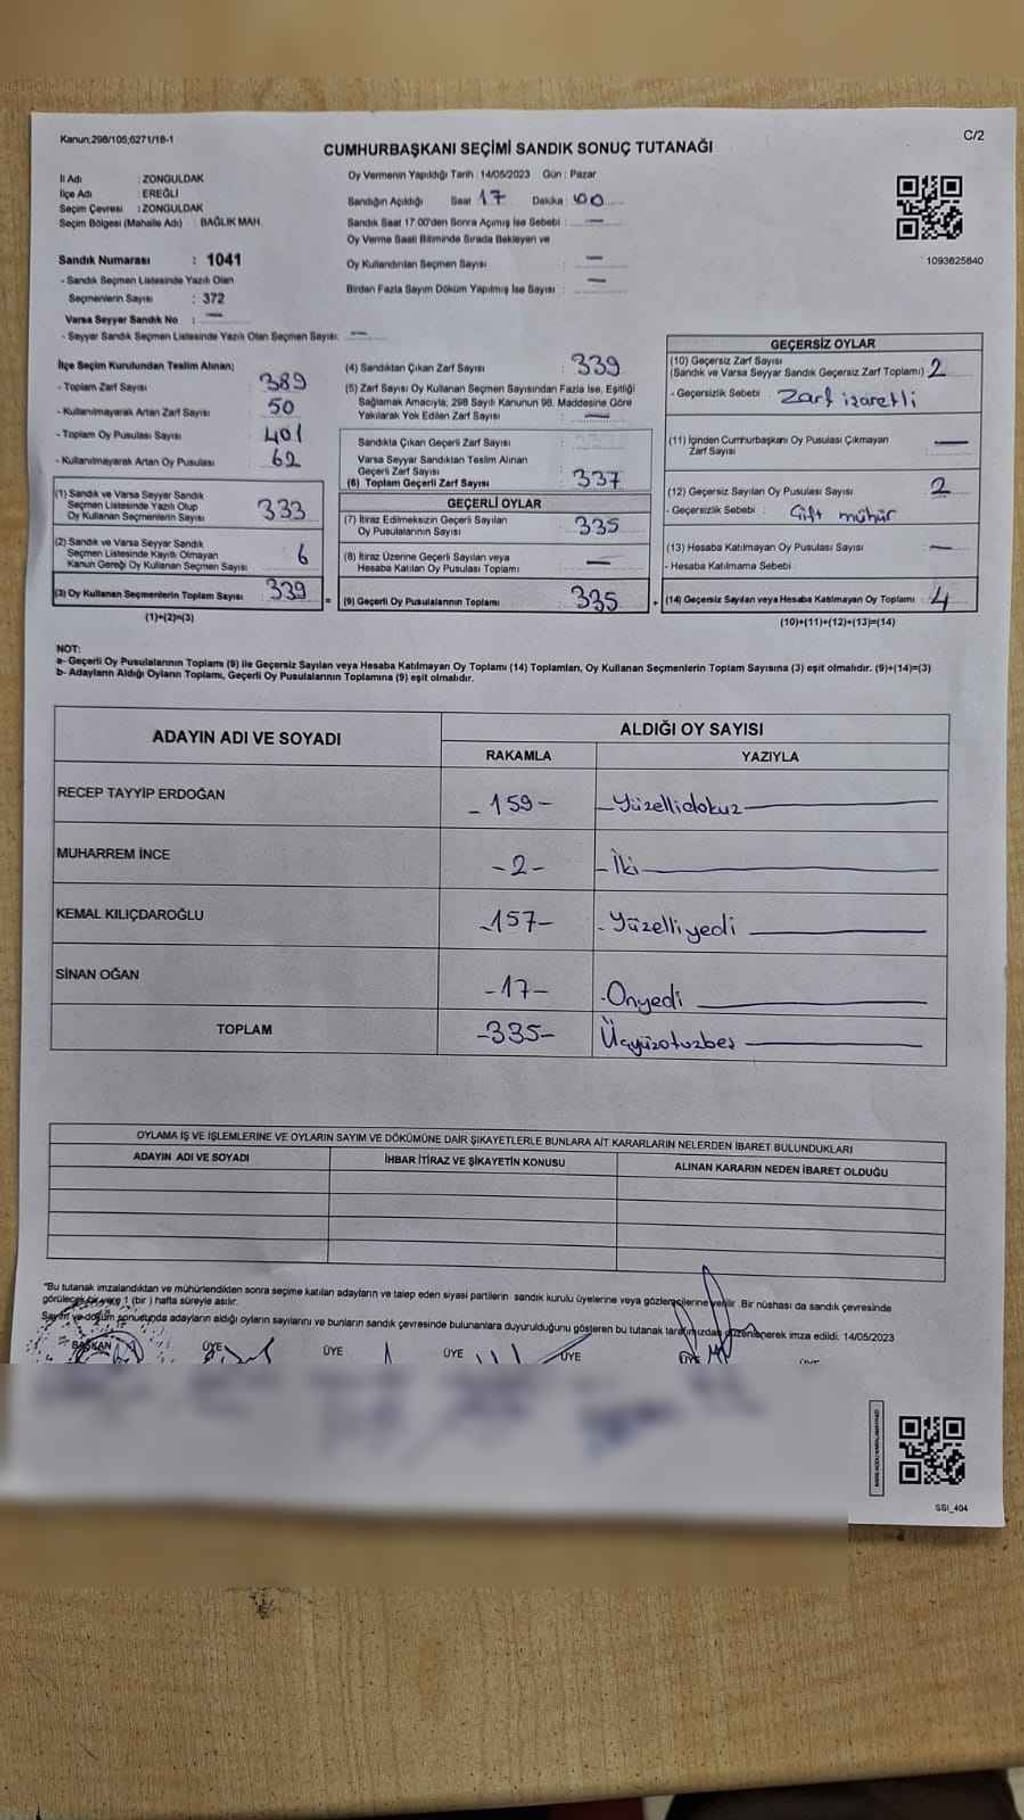 Kanun;298/105;6271/18-1
C/2
CUMHURBAŞKANI SEÇİMİ SANDIK SONUÇ TUTANAĞI
İl Adı : ZONGULDAK
İlçe Adı : EREĞLİ
Seçim Çevresi : ZONGULDAK
Seçim Bölgesi (Mahalle Adı) BAĞLIK MAH.
Oy Vermenin Yapıldığı Tarih : 14/05/2023 Gün : Pazar
Sandığın Açıldığı Saat 17 Dakika 00
Sandık Saat 17:00'den Sonra Açılmış İse Sebebi : —
Oy Verme Saati Bitiminde Sırada Bekleyen ve
Oy Kullandırılan Seçmen Sayısı : —
Birden Fazla Sayım Döküm Yapılmış İse Sayısı : —
1093625840
Sandık Numarası : 1041
- Sandık Seçmen Listesinde Yazılı Olan
Seçmenlerin Sayısı : 372
Varsa Seyyar Sandık No : —
- Seyyar Sandık Seçmen Listesinde Yazılı Olan Seçmen Sayısı: —
İlçe Seçim Kurulundan Teslim Alınan;
- Toplam Zarf Sayısı 389
- Kullanılmayarak Artan Zarf Sayısı 50
- Toplam Oy Pusulası Sayısı 401
- Kullanılmayarak Artan Oy Pusulası 62
(1) Sandık ve Varsa Seyyar Sandık
Seçmen Listesinde Yazılı Olup
Oy Kullanan Seçmenlerin Sayısı 333
(2) Sandık ve Varsa Seyyar Sandık
Seçmen Listesinde Kayıtlı Olmayan
Kanun Gereği Oy Kullanan Seçmen Sayısı 6
(3) Oy Kullanan Seçmenlerin Toplam Sayısı 339
(1)+(2)=(3)
(4) Sandıktan Çıkan Zarf Sayısı : 339
(5) Zarf Sayısı Oy Kullanan Seçmen Sayısından Fazla İse, Eşitliği
Sağlamak Amacıyla; 298 Sayılı Kanunun 98. Maddesine Göre
Yakılarak Yok Edilen Zarf Sayısı : —
Sandıkta Çıkan Geçerli Zarf Sayısı
Varsa Seyyar Sandıktan Teslim Alınan
Geçerli Zarf Sayısı
(6) Toplam Geçerli Zarf Sayısı 337
GEÇERLİ OYLAR
(7) İtiraz Edilmeksizin Geçerli Sayılan
Oy Pusulalarının Sayısı 335
(8) İtiraz Üzerine Geçerli Sayılan veya
Hesaba Katılan Oy Pusulası Toplamı —
= (9) Geçerli Oy Pusulalarının Toplamı 335
GEÇERSİZ OYLAR
(10) Geçersiz Zarf Sayısı
(Sandık ve Varsa Seyyar Sandık Geçersiz Zarf Toplamı) 2
- Geçersizlik Sebebi : Zarf işaretli
(11) İçinden Cumhurbaşkanı Oy Pusulası Çıkmayan
Zarf Sayısı —
(12) Geçersiz Sayılan Oy Pusulası Sayısı 2
- Geçersizlik Sebebi : Çift mühür
(13) Hesaba Katılmayan Oy Pusulası Sayısı —
- Hesaba Katılmama Sebebi
+ (14) Geçersiz Sayılan veya Hesaba Katılmayan Oy Toplamı : 4
(10)+(11)+(12)+(13)=(14)
NOT:
a- Geçerli Oy Pusulalarının Toplamı (9) ile Geçersiz Sayılan veya Hesaba Katılmayan Oy Toplamı (14) Toplamları, Oy Kullanan Seçmenlerin Toplam Sayısına (3) eşit olmalıdır. (9)+(14)=(3)
b- Adayların Aldığı Oyların Toplamı, Geçerli Oy Pusulalarının Toplamına (9) eşit olmalıdır.
ADAYIN ADI VE SOYADI
ALDIĞI OY SAYISI
RAKAMLA YAZIYLA
RECEP TAYYİP ERDOĞAN -159- -Yüzellidokuz-
MUHARREM İNCE -2- -İki-
KEMAL KILIÇDAROĞLU -157- -Yüzelliyedi-
SİNAN OĞAN -17- -Onyedi-
TOPLAM -335- Üçyüzotuzbeş-
OYLAMA İŞ VE İŞLEMLERİNE VE OYLARIN SAYIM VE DÖKÜMÜNE DAİR ŞİKAYETLERLE BUNLARA AİT KARARLARIN NELERDEN İBARET BULUNDUKLARI
ADAYIN ADI VE SOYADI İHBAR İTİRAZ VE ŞİKAYETİN KONUSU ALINAN KARARIN NEDEN İBARET OLDUĞU
"Bu tutanak imzalandıktan ve mühürlendikten sonra seçime katılan adayların ve talep eden siyasi partilerin sandık kurulu üyelerine veya gözlemcilerine verilir. Bir nüshası da sandık çevresinde
görülecek bir yere 1 (bir ) hafta süreyle asılır.
Sayım ve döküm sonucunda adayların aldığı oyların sayılarını ve bunların sandık çevresinde bulunanlara duyurulduğunu gösteren bu tutanak tarafımızdan düzenlenerek imza edildi. 14/05/2023
BAŞKAN ÜYE ÜYE ÜYE ÜYE ÜYE
SSI_404